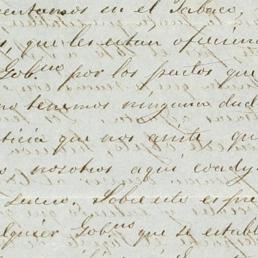 en el Tabaco,
que les estan ofreciendo
Gob.no por los puntos que
no tenemos ninguna dud
ticia que nos asiste que
nosotros aquí coady
Lucio, Sobre este espe
lquier Gob.no que se establ